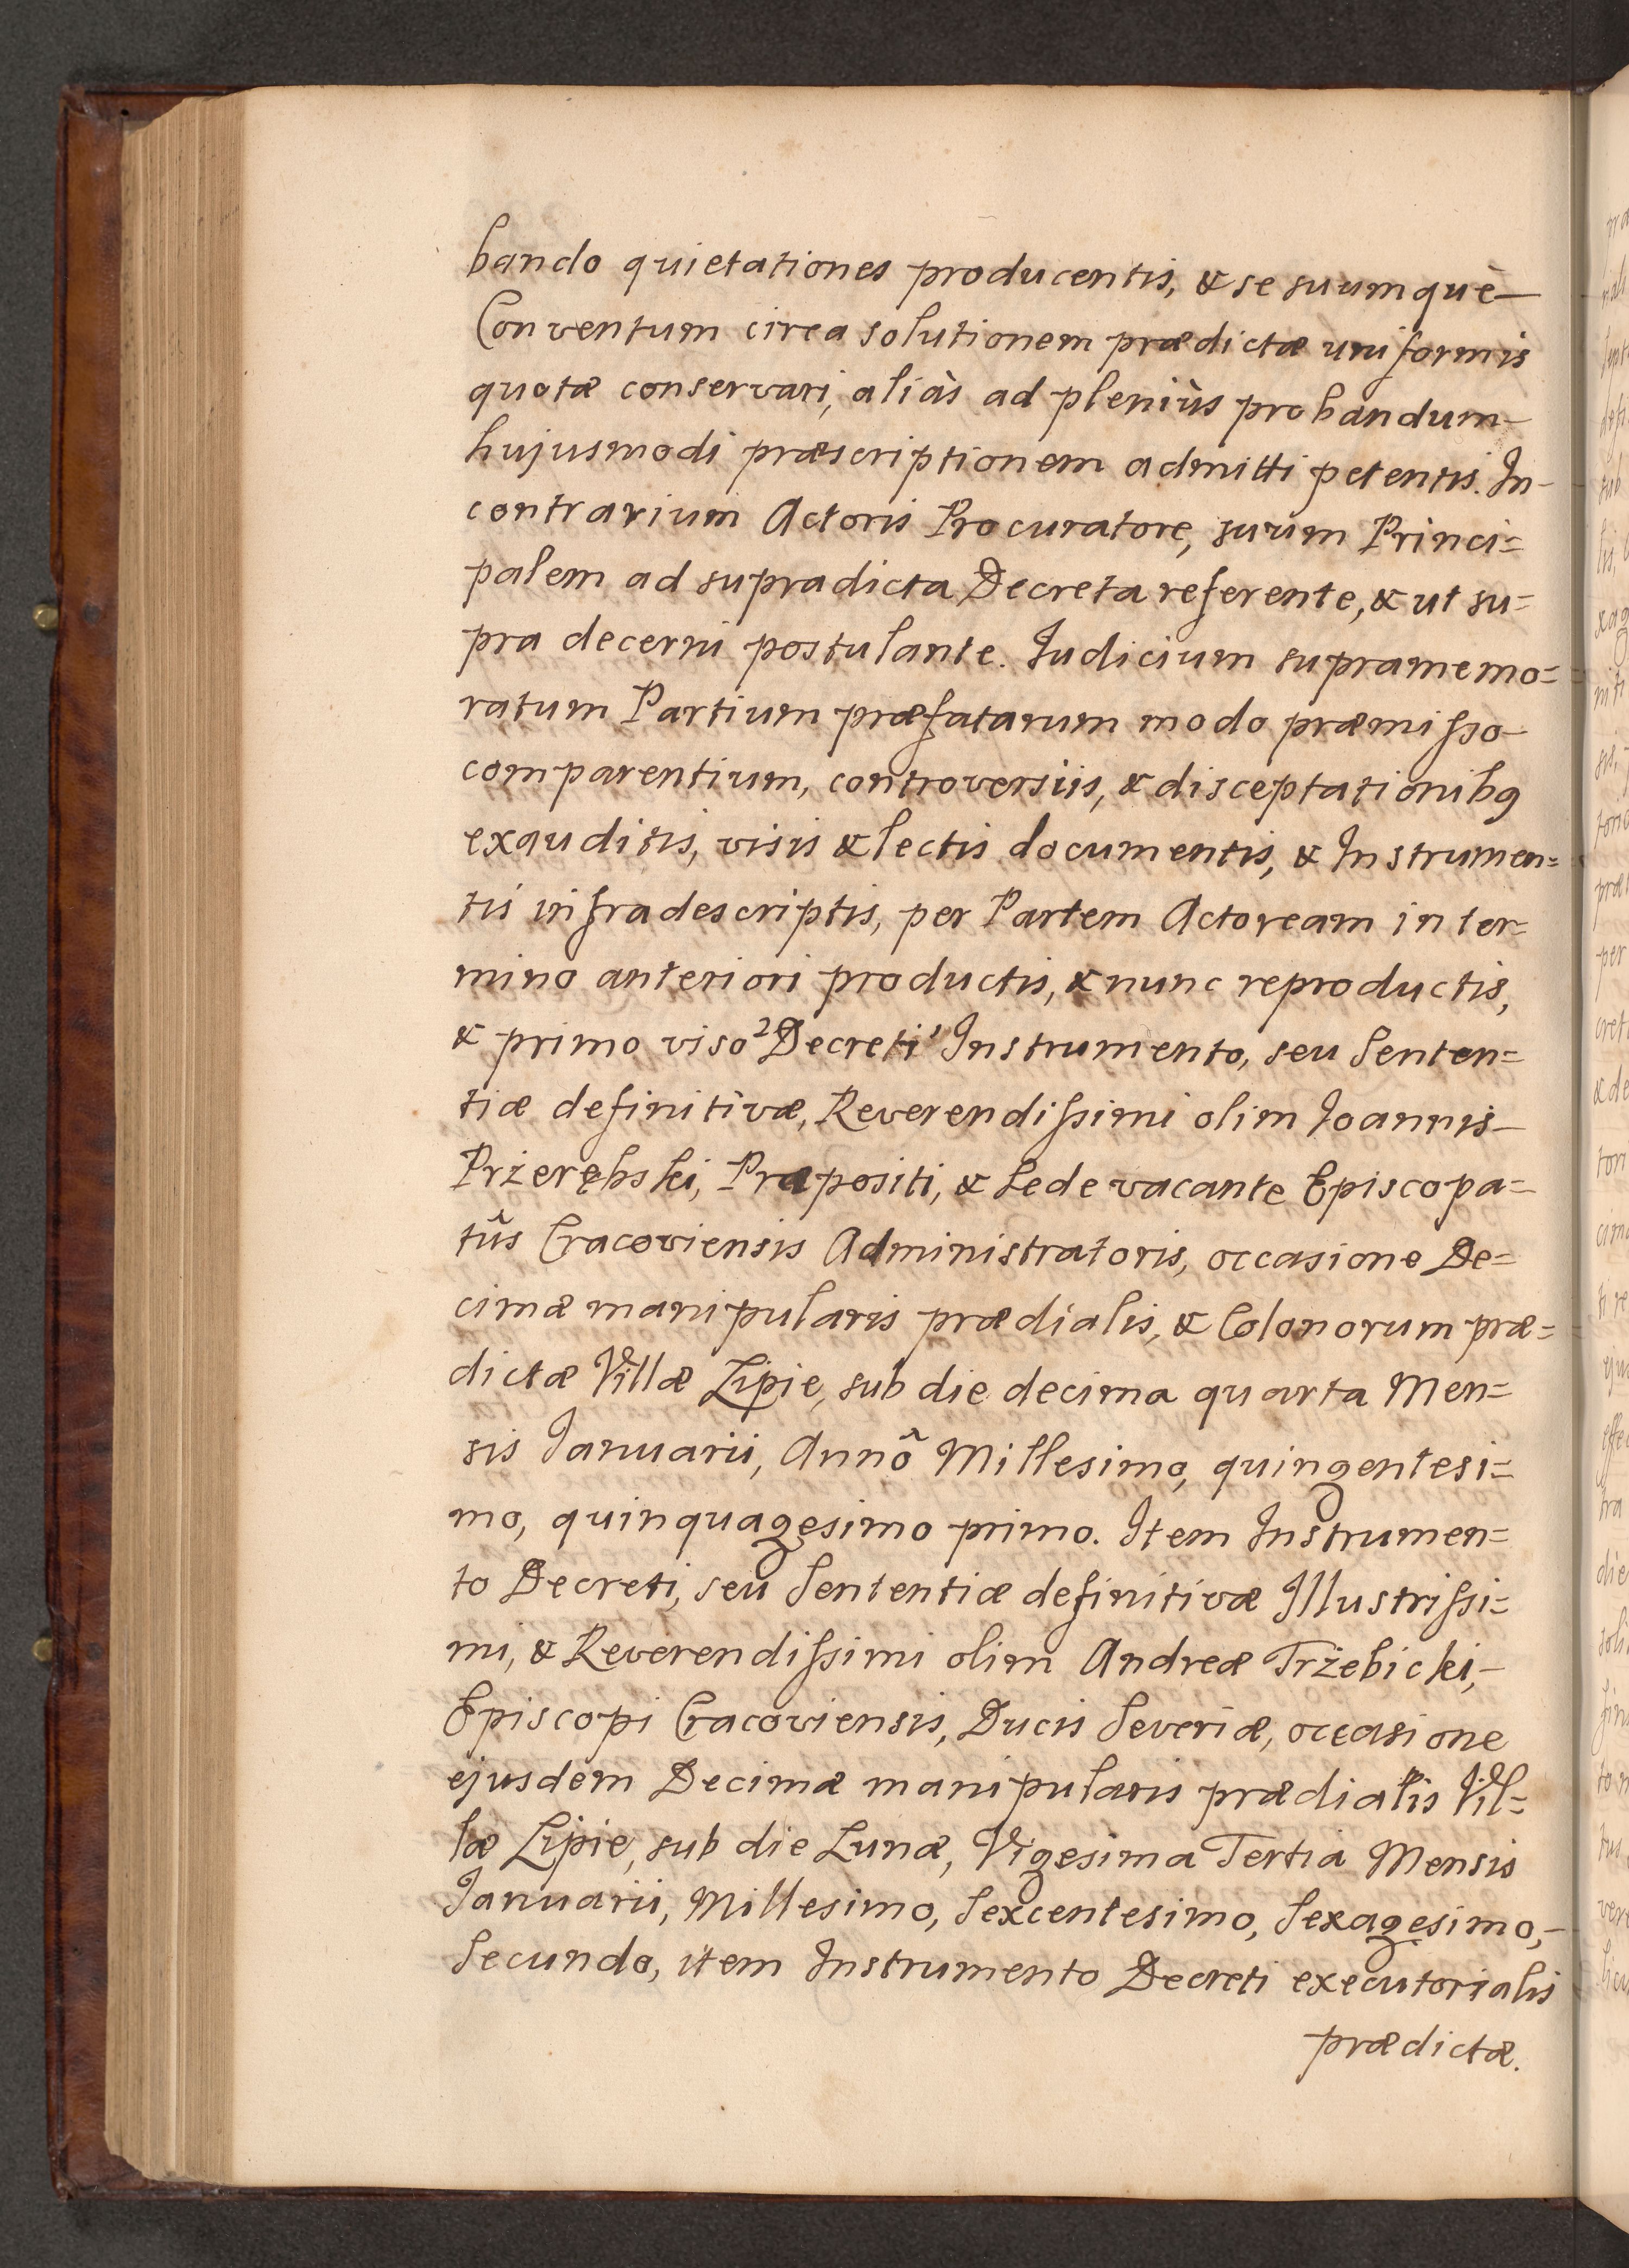 bando quietationes producentis, & se suumquè
Conventum circa solutionem prædictæ uniformis
quotæ conservari, aliàs ad pleniùs probandum
hujusmodi præscriptionem admitti petentis. In
contrarium Actoris Procuratore, suum Princi=
palem ad supradicta Decreta referente, & ut su=
pra decerni postulante. Iudicium supramemo=
ratum Partium præfatarum modo præmiſso
comparentium, controversiis, & disceptationibq
exauditis, visis & lectis documentis, & Instrumen=
tis infradescriptis, per Partem Actoream in ter=
mino anteriori productis, & nunc reproductis,
& primo viso ²Decreti ¹Instrumento, seu Senten=
tiæ definitivæ, Reverendiſsimi olim Ioannis
Przerębski, Præpositi, & Sede vacante Episcopa=
tûs Cracoviensis Administratoris, occasione De=
cimæ manipularis prædialis, & Colonorum præ=
dictæ Villæ Lipie, sub die decima quarta Men=
sis Ianuarii, Annô Millesimo, quingentesi=
mo, quinquagesimo primo. Item Instrumen=
to Decreti, seu Sententiæ definitivæ Illustriſsi=
mi, & Reverendiſsimi olim Andreæ Trżebicki,
Episcopi Cracoviensis, Ducis Severiæ, occasione
ejusdem Decimæ manipularis prædialis Vil=
læ Lipie, sub die Lunæ, Vigesima Tertia Mensis
Ianuarii, Millesimo, Sexcentesimo, Sexagesimo,
Secundo, item Instrumento Decreti executorialis
prædictæ.